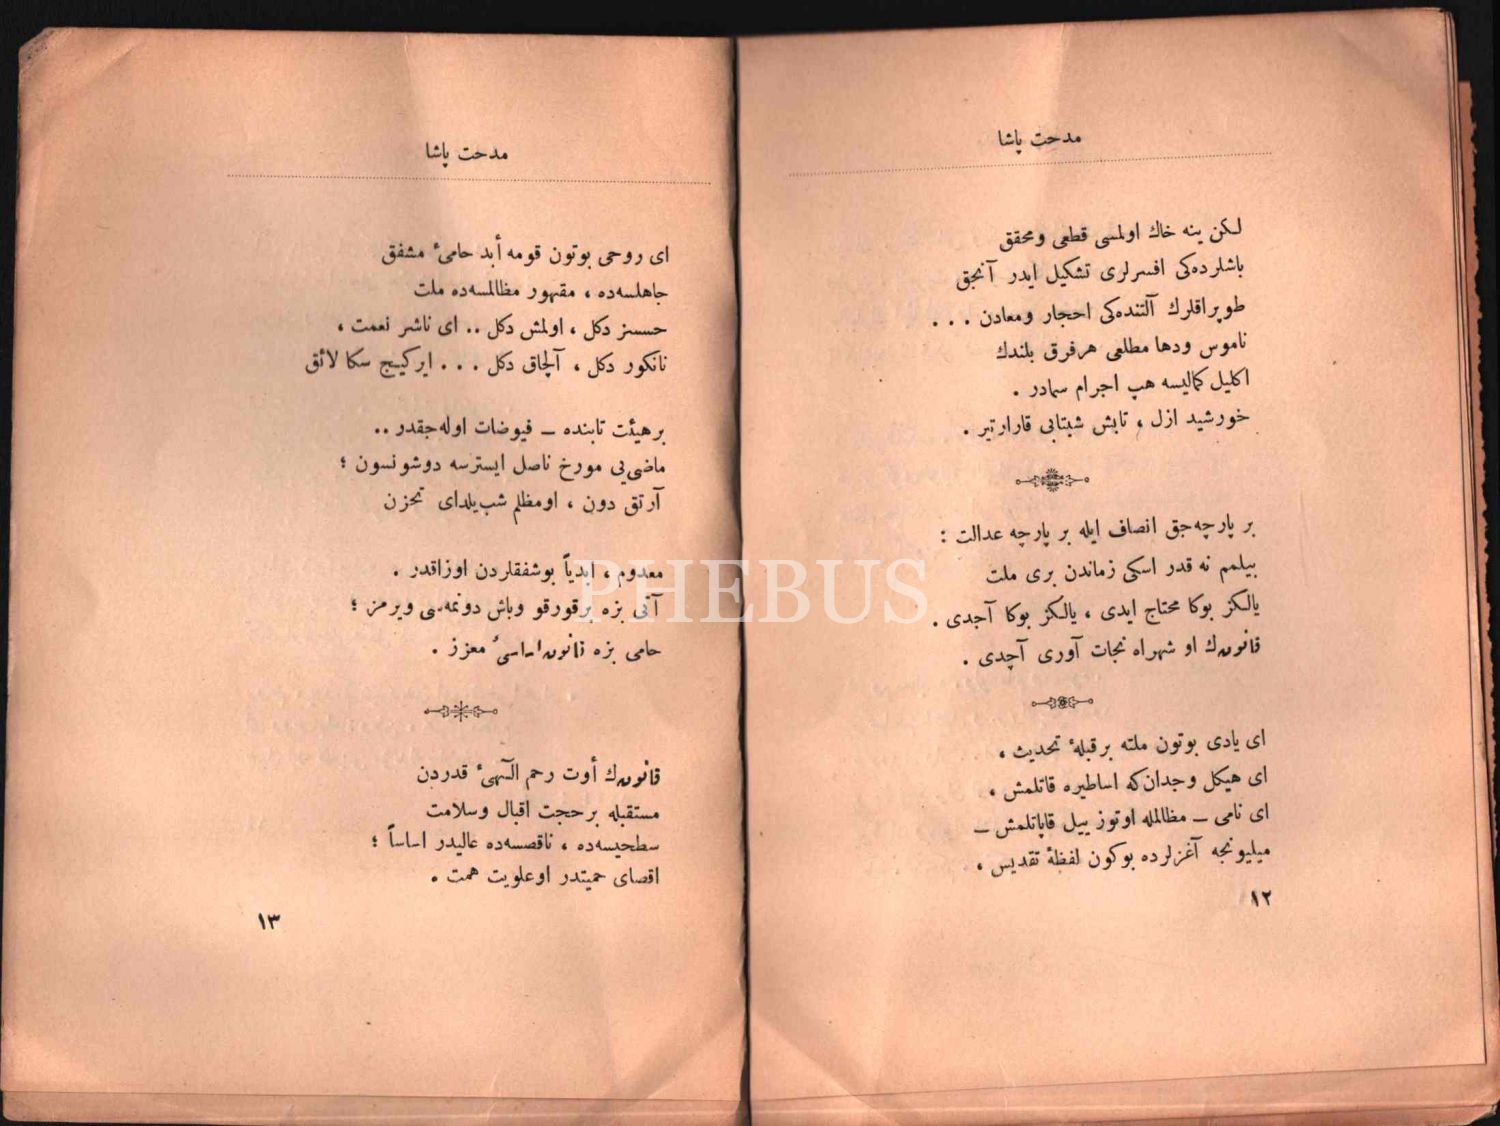 مدحت پاشا
لكن ينه خاك اولمسى قطعى ومحقق
باشلرده‌كى افسرلرى تشكيل ايدر آنجق
طوپراقلرك آلتنده‌كى احجار ومعادن . . .
ناموس ودها مطلعى هرفرق بلندك
اكليل كماليسه هپ اجرام سمادر .
خورشيد ازل ، تابش شبتابى قارارتير .
بر پارچه‌جق انصاف ايله بر پارچه عدالت :
بيلمم نه قدر اسكى زماندن برى ملت
يالكز بوكا محتاج ايدى ، يالكز بوكا آجدى .
قانونك او شهراه نجات آورى آچدى .
اى يادى بوتون ملته برقبلهٔ تحديث ،
اى هيكل وجدان‌كه اساطيره قاتلمش ،
اى نامى ــ مظالمله اوتوز ييل قاپاتلمش ــ
ميليونجه آغزلرده بوكون لفظهٔ تقديس ،
١٢
مدحت پاشا
اى روحى بوتون قومه أبد حامىٔ مشفق
جاهلسه‌ده ، مقهور مظالمسه‌ده ملت
حسسز دكل ، اولمش دكل .. اى ناشر نعمت ،
نانكور دكل ، آلچاق دكل . . . ايركيچ سكا لائق
برهيئت تابنده ــ فيوضات اوله‌جقدر ..
ماضى‌يى مورخ ناصل ايسترسه دوشونسون ؛
آرتق دون ، اومظلم شب‌يلداى تحزن
معدوم ، ابدياً بوشفقلردن اوزاقدر .
آتى بزه برقورقو وباش دونمه‌سى ويرمز ؛
حامى بزه قانون‌اساسىٔ معزز .
قانونك أوت رحم الٓهىٔ قدردن
مستقبله برحجت اقبال وسلامت
سطحيسه‌ده ، ناقصسه‌ده عاليدر اساساً ؛
اقصاى حميتدر اوعلويت همت .
١٣
PHEBUS